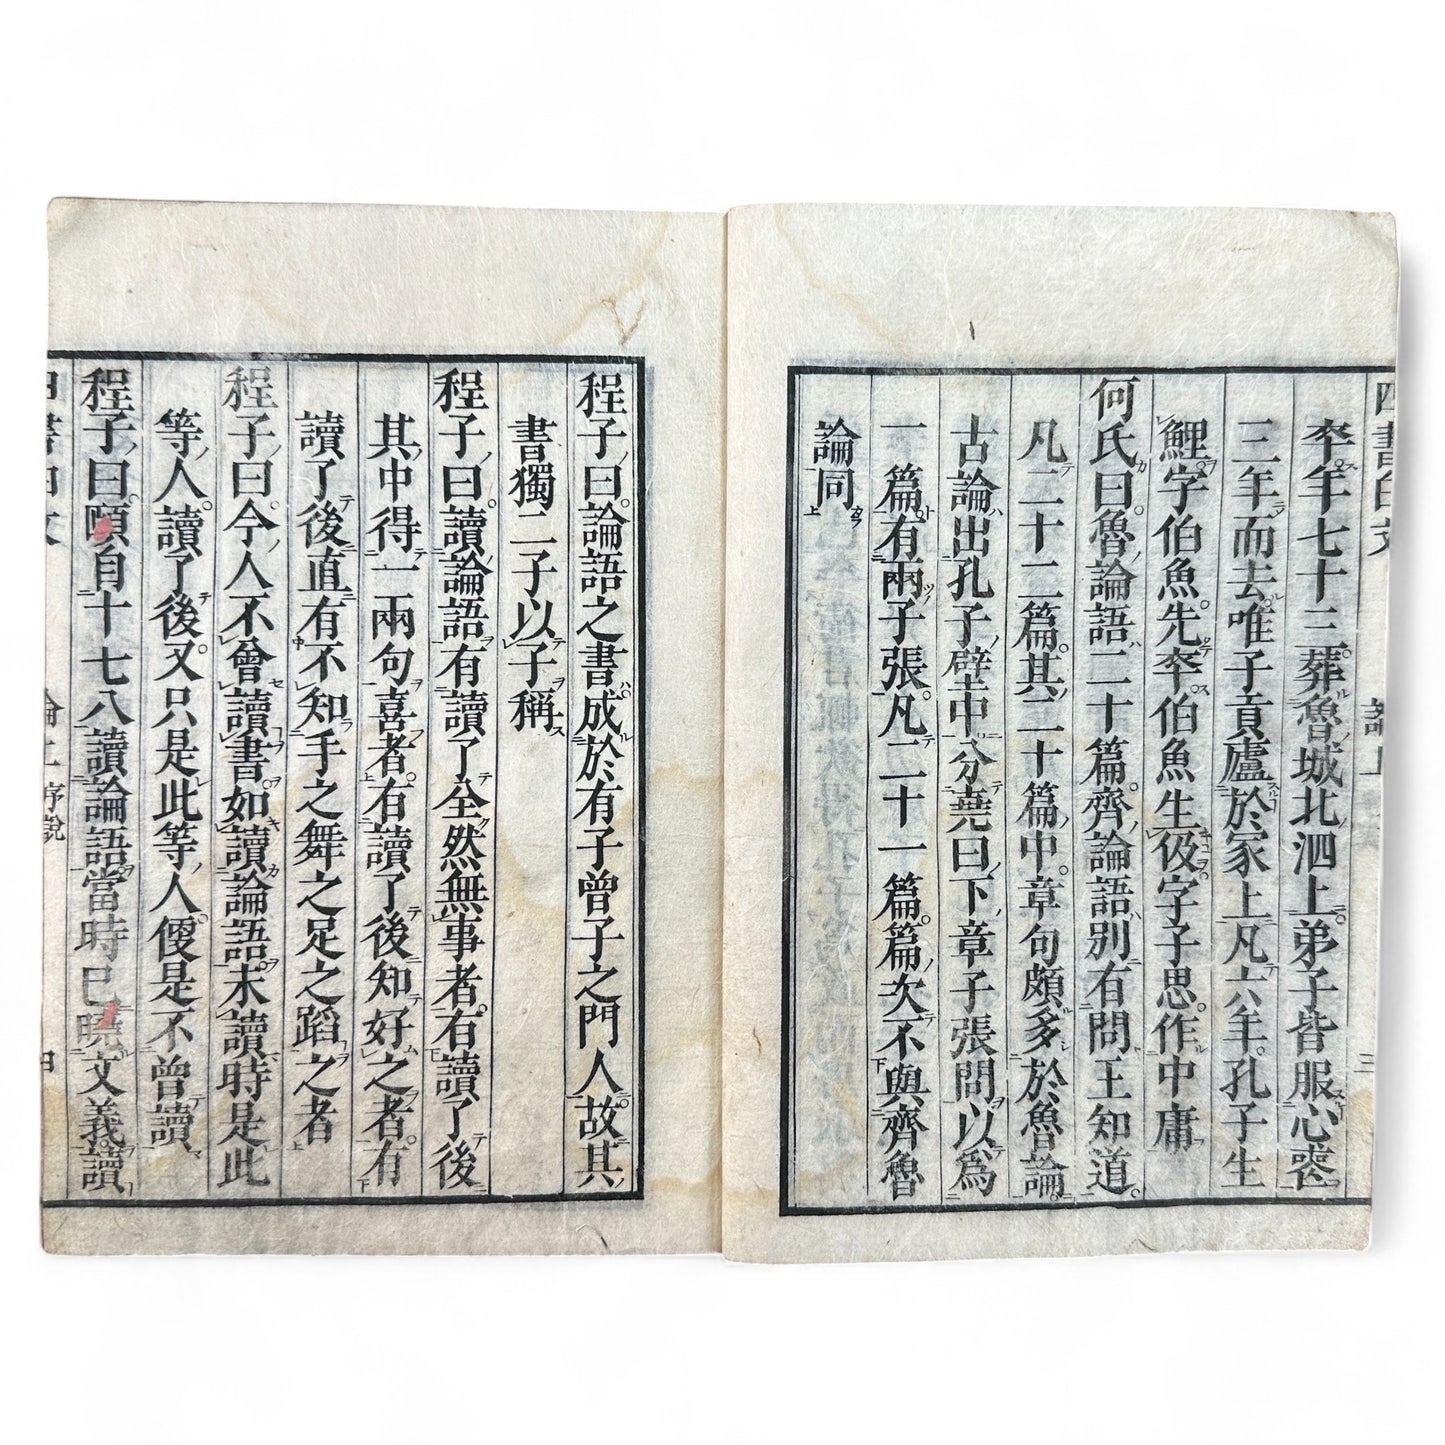 四書白文 論上 三
卒年七十三葬魯城北泗上弟子皆服心喪
三年而去唯子貢廬於冢上凡六年孔子生
鯉字伯魚先卒伯魚生伋字子思作中庸
何氏曰魯論語二十篇齊論語別有問王知道
凡二十二篇其二十篇中章句頗多於魯論
古論出孔子壁中分堯曰下章子張問以為
一篇有兩子張凡二十一篇篇次不與齊魯
論同
程子曰論語之書成於有子曾子之門人故其
書獨二子以子稱
程子曰讀論語有讀了全然無事者有讀了後
其中得一兩句喜者有讀了後知好之者有
讀了後直有不知手之舞之足之蹈之者
程子曰今人不會讀書如讀論語未讀時是此
等人讀了後又只是此等人便是不曾讀
程子曰頤自十七八讀論語當時已曉文義讀
四書白文 論上 序說 四